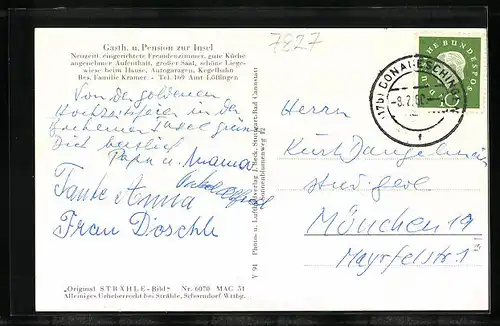 7827
Gasth. u. Pension zur Insel
Neuzeitl. eingerichtete Fremdenzimmer, gute Küche
angenehmer Aufenthalt, großer Saal, schöne Liege-
wiese beim Hause, Autogaragen, Kegelbahn
Bes. Familie Kramer. - Tel. 169 Amt Löffingen
Von der goldenen
Hochzeitsfeier in der
Insel
Dich herzlich
Papa u. Mama
Tante Anna
Frau Döschle
"Original STRÄHLE-Bild" Nr. 6070 MAC 51
Alleiniges Urheberrecht bei Strähle, Schorndorf Wttbg.
V 94 Photo- u. Luftbildverlag I. Beck, Stuttgart-Bad Cannstatt
DEUTSCHE BUNDESPOST
10
(17b) DONAUESCHINGEN
Herrn
Kurt
stud. geol.
München 19
Mayrfelsstr 1